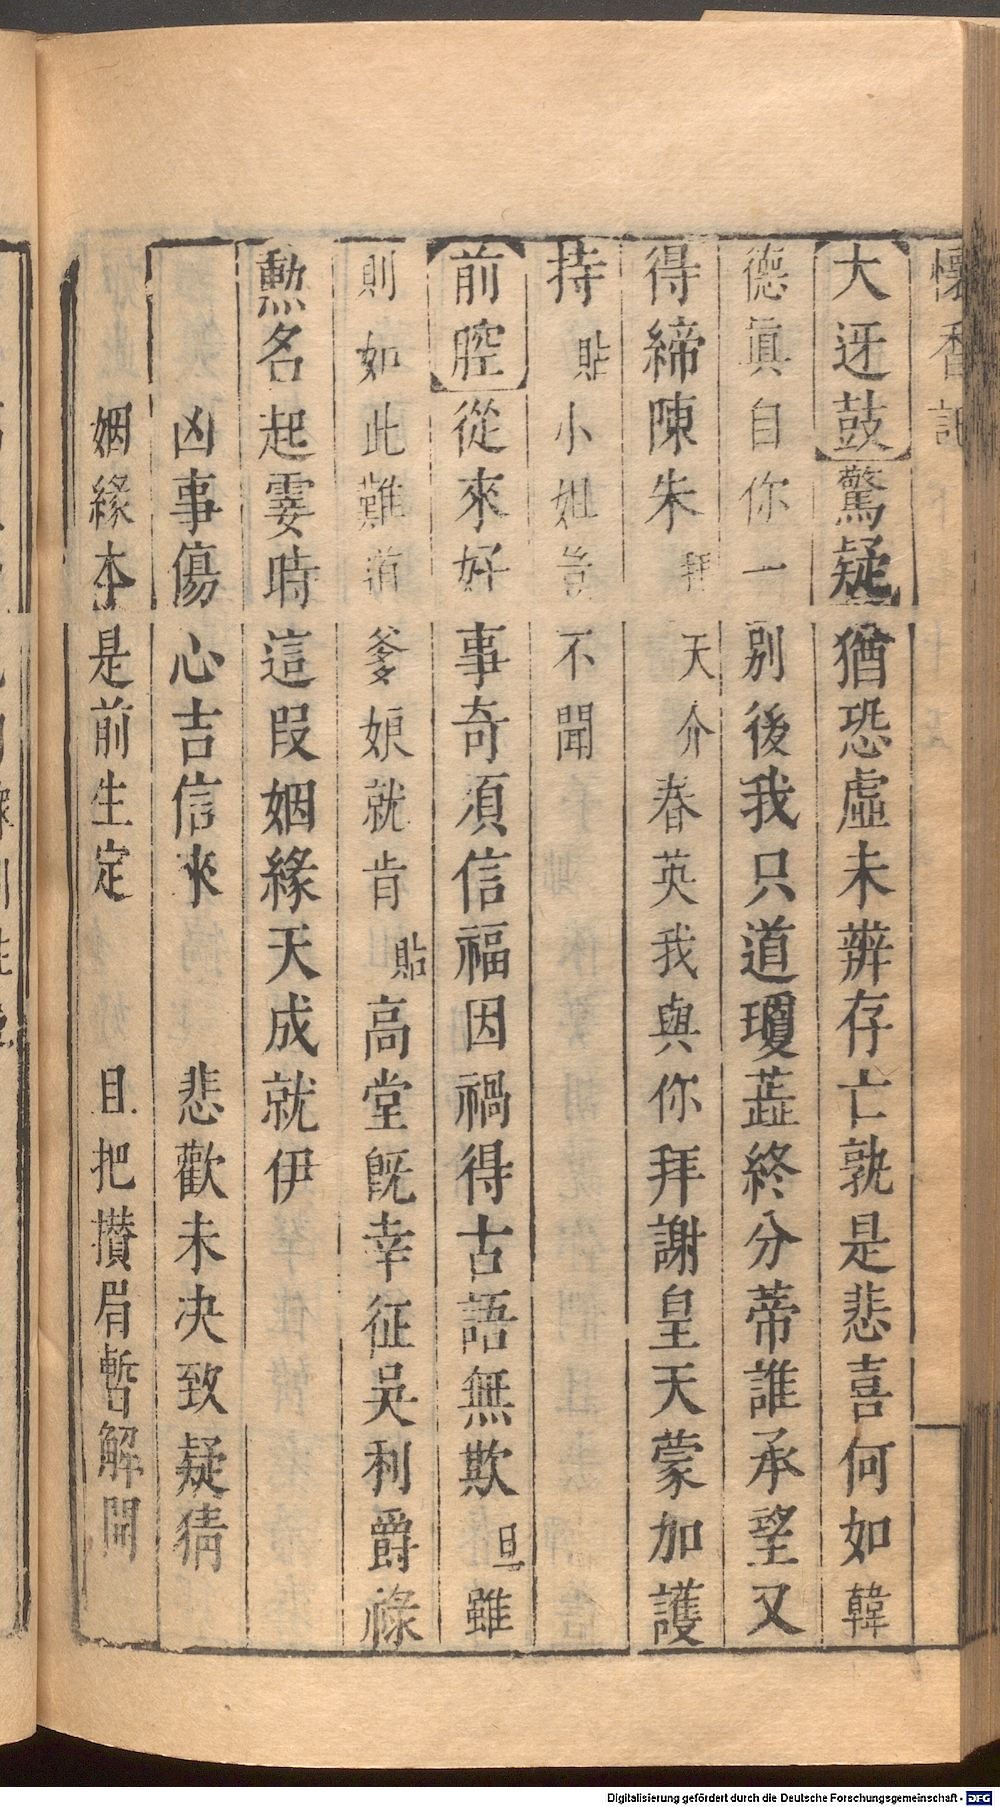 懷香記
大迓鼓驚疑猶恐虛未辨存亡孰是悲喜何如韓
德眞自你一別後我只道瓊蕋終分蒂誰承望又
得締陳朱拜天介春英我與你拜謝皇天蒙加護
持貼小姐豈不聞
前腔從來好事奇須信福因禍得古語無欺旦雖
則如此難道爹娘就肯貼高堂旣幸征吳利爵祿
勲名起霎時這段姻緣天成就伊
凶事傷心吉信來 悲歡未决致疑猜
姻緣本是前生定 且把攅眉暫解開
Digitalisierung gefördert durch die Deutsche Forschungsgemeinschaft - DFG